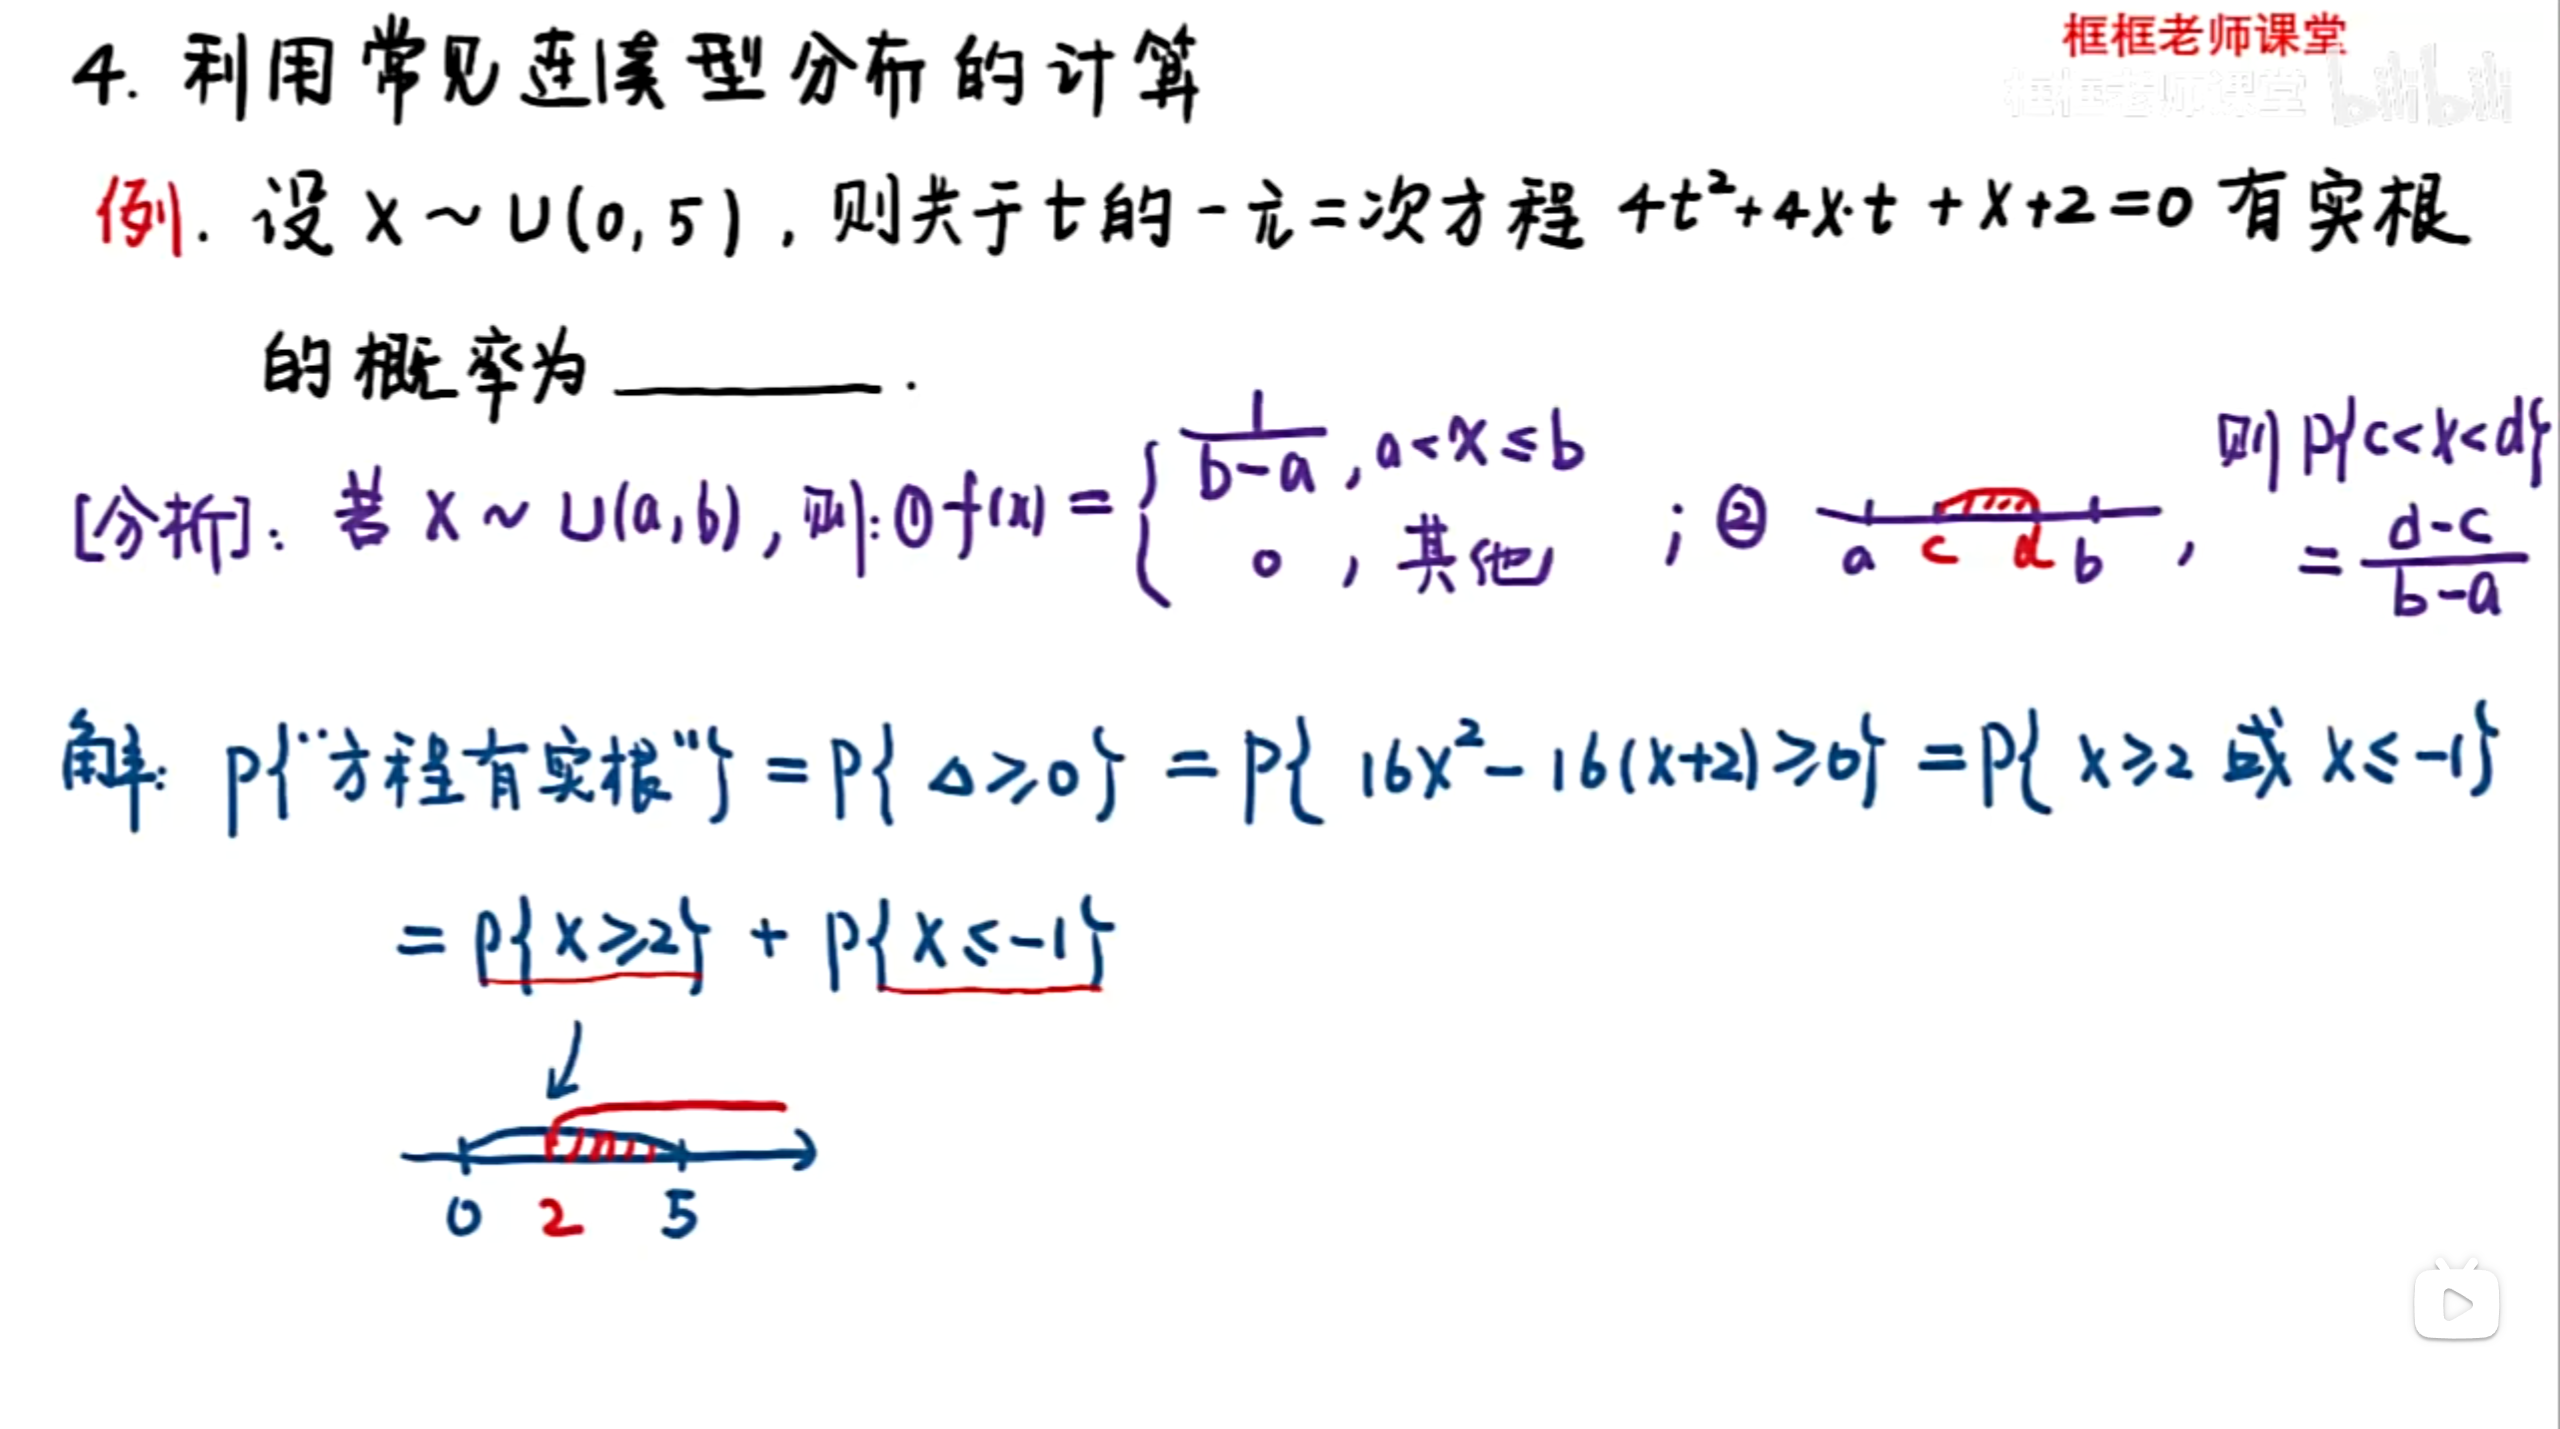 框框老师课堂
框框老师课堂 bilibili
4. 利用常见连续型分布的计算
例. 设 X ~ U(0, 5), 则关于t的一元二次方程 4t²+4X·t + X+2=0 有实根
的概率为 ______ .
[分析]: 若 X ~ U(a,b), 则: ① f(x) = { 1/(b-a), a<x≤b ; 0, 其他 ; ② a c d b , 则 P{c<X<d} = (d-c)/(b-a)
解: P{"方程有实根"} = P{ Δ≥0} = P{ 16X²-16(X+2)≥0} = P{ X≥2 或 X≤-1}
= P{X≥2} + P{X≤-1}
0 2 5